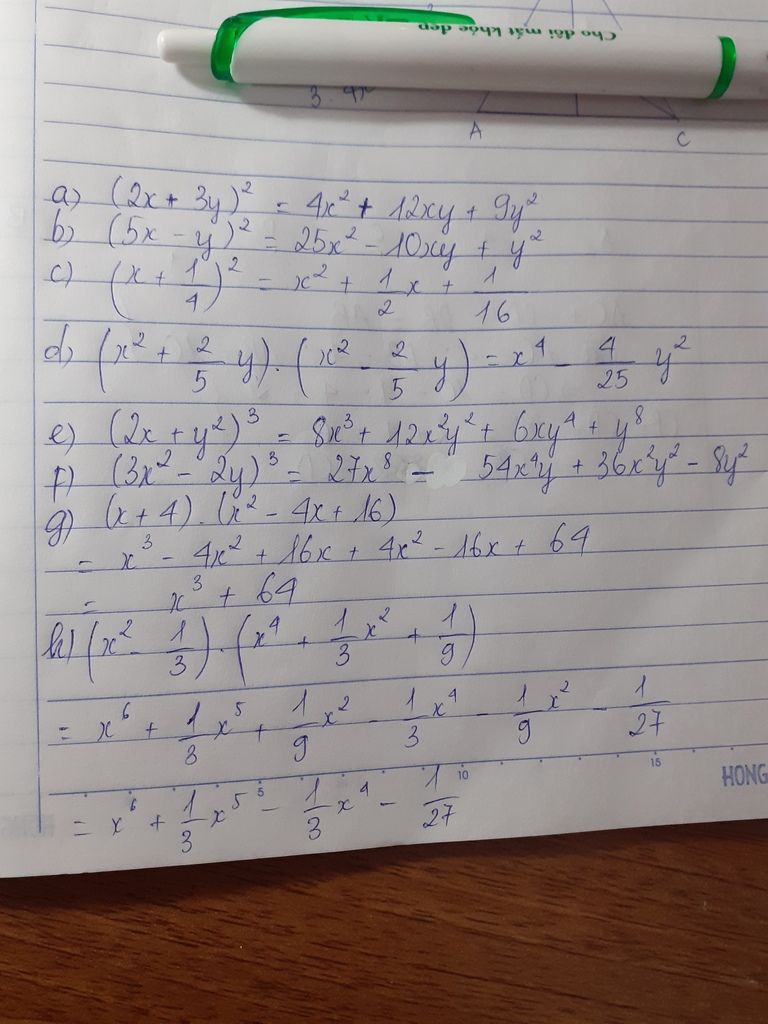 Cho đôi mắt khỏe đẹp
A C
a) (2x + 3y)² = 4x² + 12xy + 9y²
b) (5x - y)² = 25x² - 10xy + y²
c) (x + 1/4)² = x² + 1/2 x + 1/16
d) (x² + 2/5 y) . (x² - 2/5 y) = x⁴ - 4/25 y²
e) (2x + y²)³ = 8x³ + 12x²y² + 6xy⁴ + y⁸
f) (3x² - 2y)³ = 27x⁸ - 54x⁴y + 36x²y² - 8y²
g) (x + 4) . (x² - 4x + 16)
= x³ - 4x² + 16x + 4x² - 16x + 64
= x³ + 64
h) (x² - 1/3) . (x⁴ + 1/3 x² + 1/9)
= x⁶ + 1/3 x⁵ + 1/9 x² - 1/3 x⁴ - 1/9 x² - 1/27
5 10 15 HONG
= x⁶ + 1/3 x⁵ - 1/3 x⁴ - 1/27